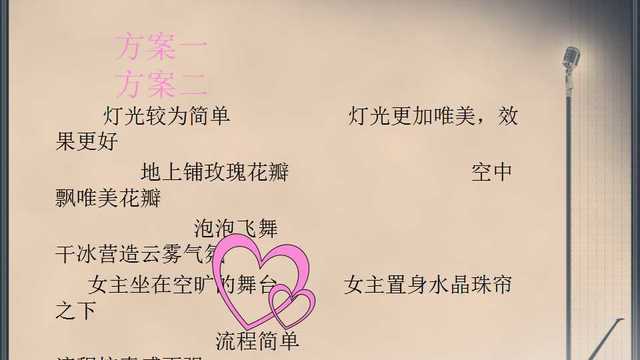 方案一
方案二
灯光较为简单 灯光更加唯美，效
果更好
地上铺玫瑰花瓣 空中
飘唯美花瓣
泡泡飞舞
干冰营造云雾气氛
女主坐在空旷的舞台 女主置身水晶珠帘
之下
流程简单